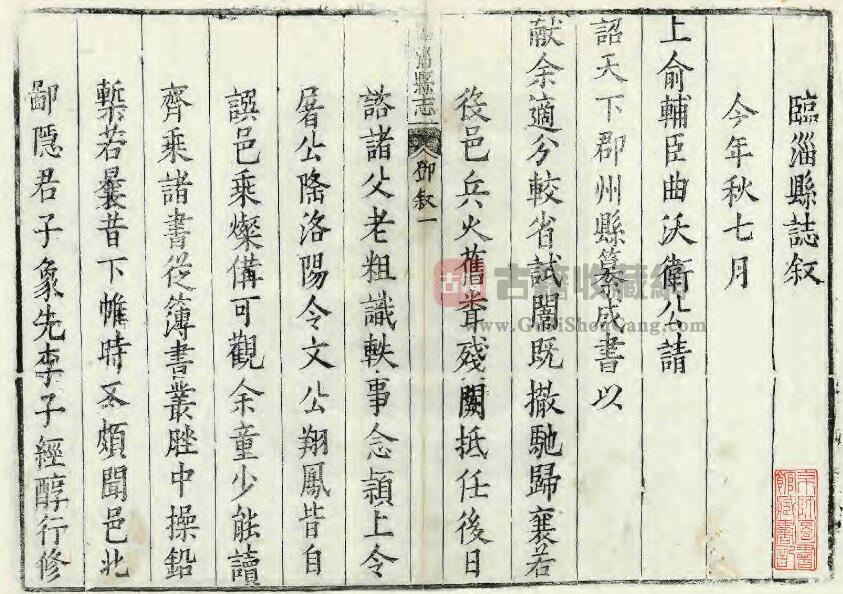 臨淄縣誌叙
今年秋七月
上俞輔臣曲沃衛公請
詔天下郡州縣纂成書以
献余適分較省試闈既撤馳歸襄若
役邑兵火舊耆殘闕抵任後日
淄縣志
御叙一
諮諸父老粗識軼事念潁上令
屠公隆洛陽令文公翔鳳皆自
譔邑乘燦備可觀余童少能讀
齊乘諸書從簿書叢脞中操鉛
槧若曩昔下帷時不頗聞邑北
鄙隱君子象先李子經醇行修
古籍收藏網
www.GuJiShouCang.com